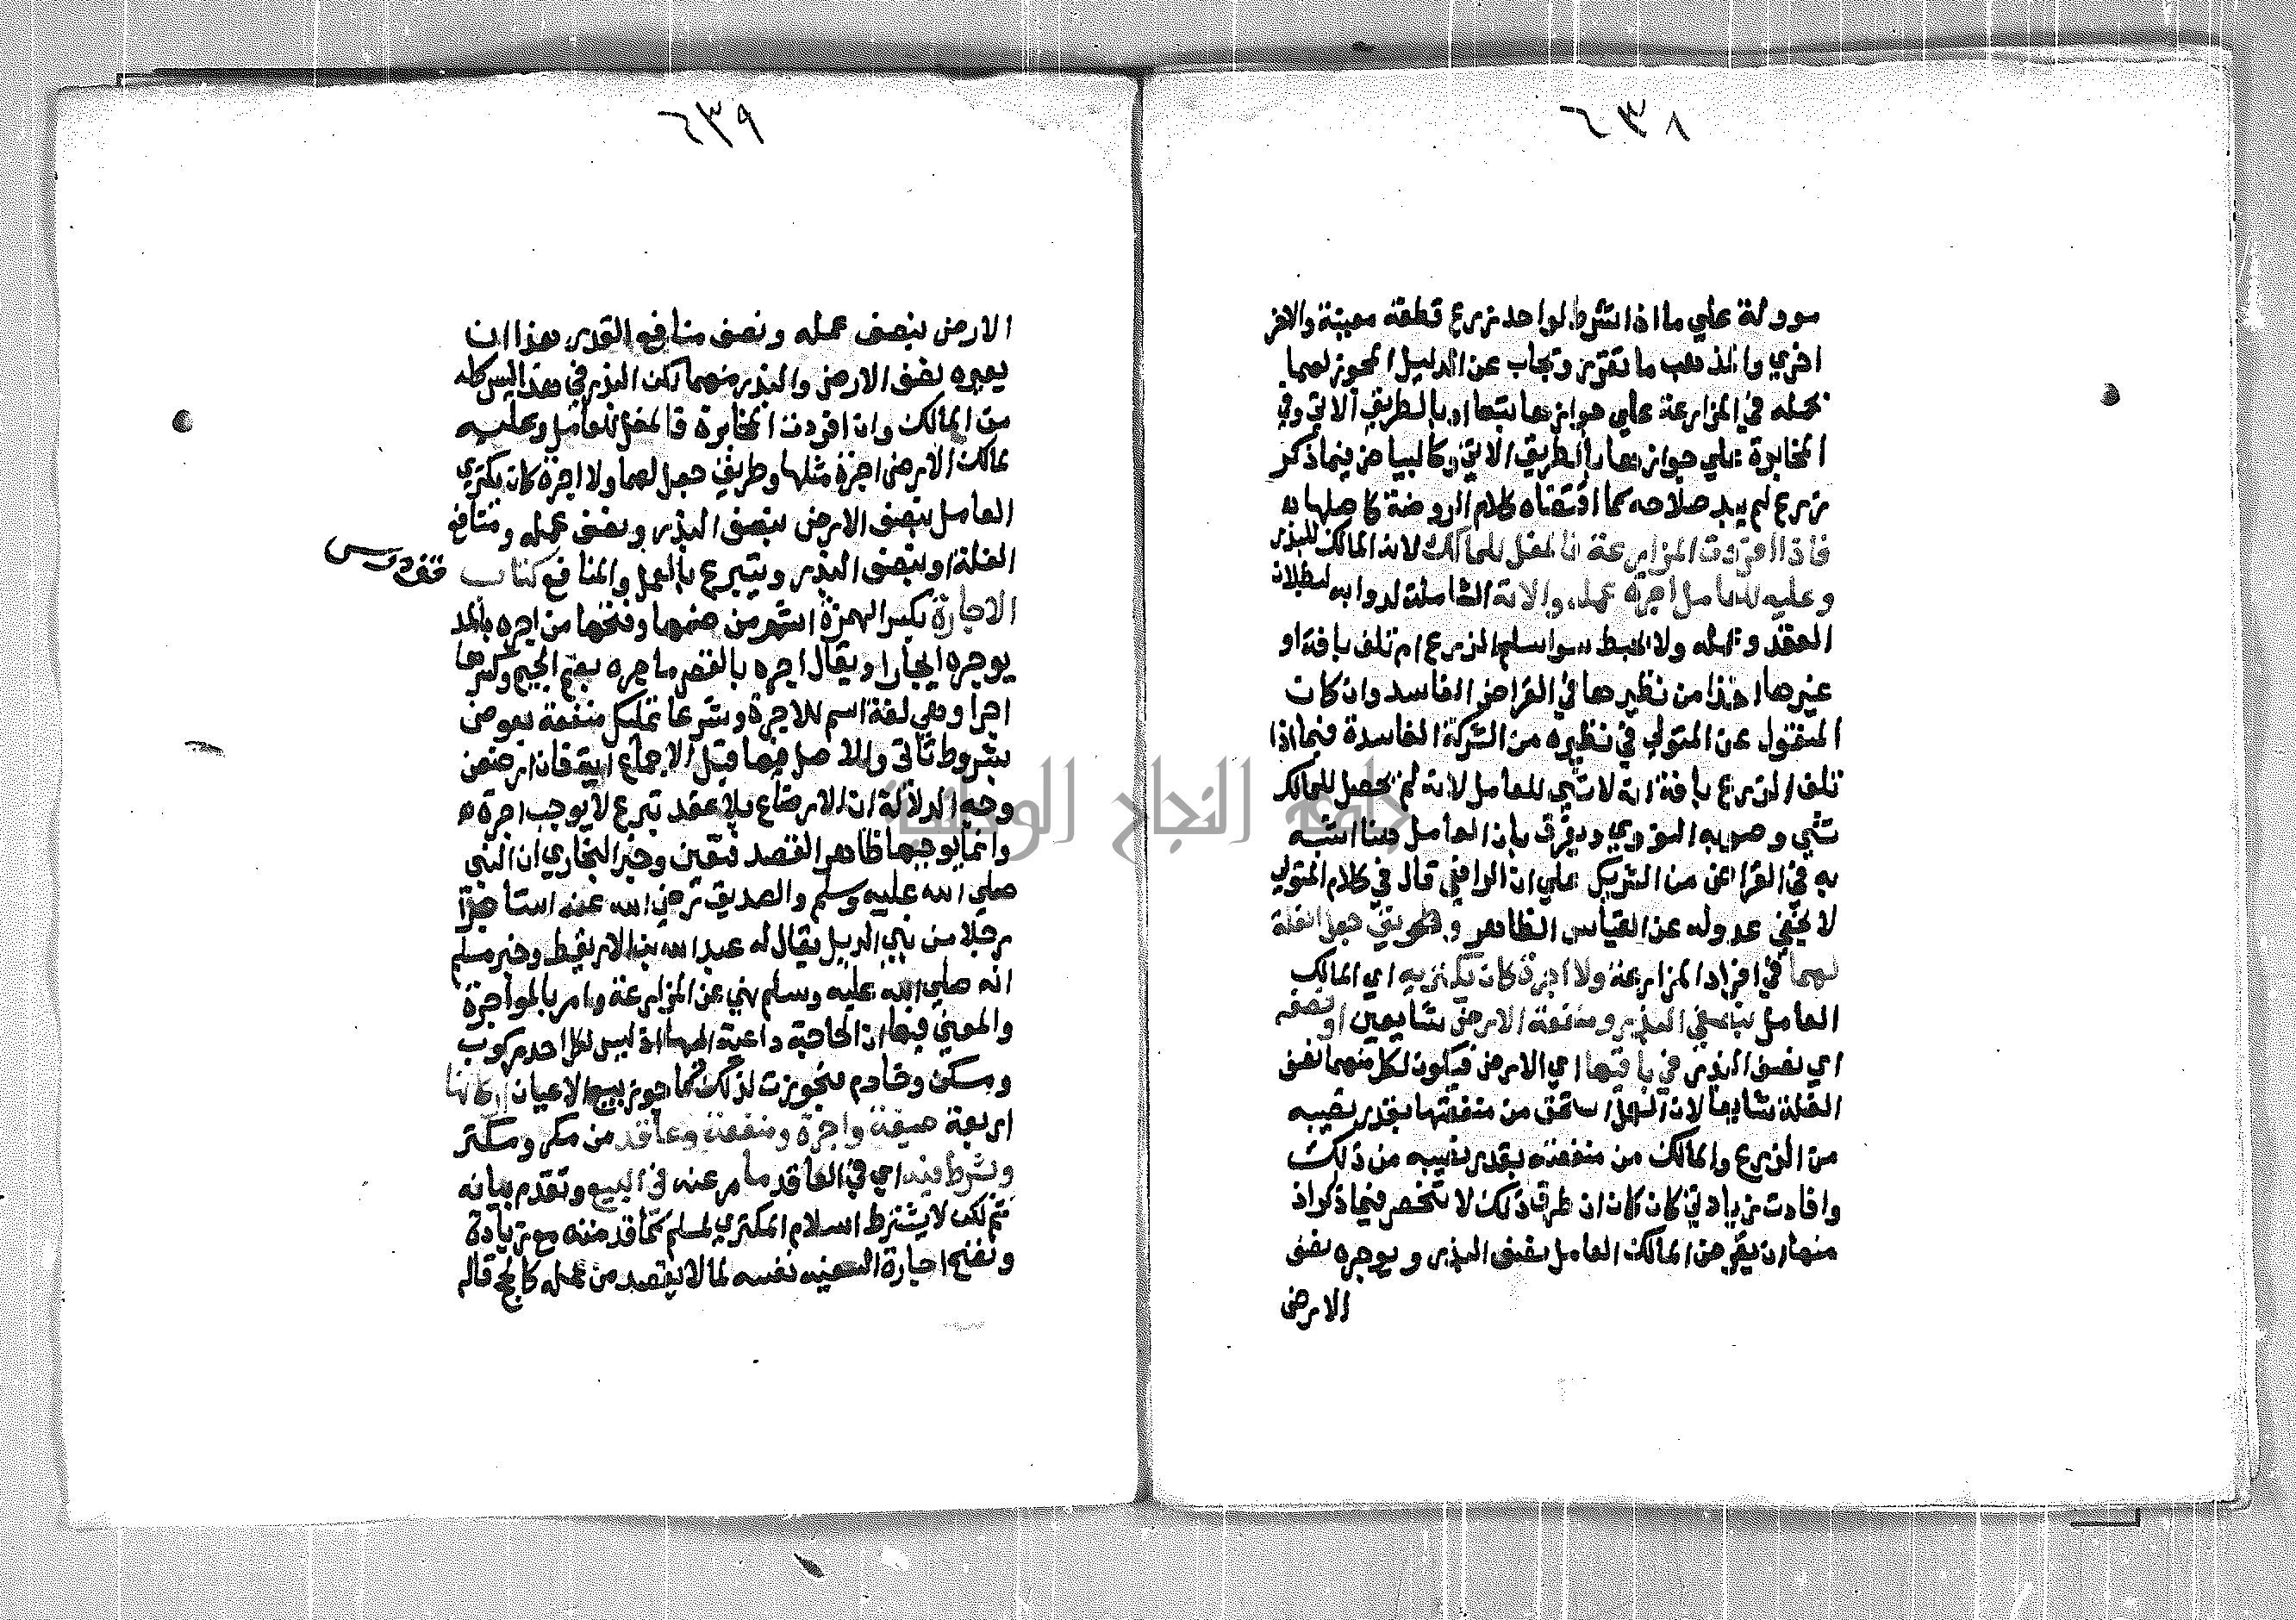 ٦٣٨
مووله علي ما اذا اشترط لواحد زرع قطعة معينة والاخر
اخري والمذهب ما تقرر ويجاب عن الدليل المجوز لهما
بحمله في المزارعة علي جوازها تبعا او بالطريق الاتي وفي
المخابرة علي جوازها بالطريق الاتي وكالبياض فيما ذكر
زرع لم يبد صلاحه كما اقتضاه كلام الروضة كاصلها
فاذا افردت المزارعة فالمغل للمالك لانه المالك للبذر
وعليه للعامل اجرة عمله والاته الشاملة لدوابه لبطلان
العقد وعمله ولا يحبط سوا سلم الزرع ام تلف بافة او
غيرها اخذا من نظيرها في القراض الفاسد وان كان
المنقول عن المتولي في نظيره من الشركة الفاسدة فيما اذا
تلف الزرع بافة انه لا شي للعامل لانه لم يحصل للمالك
شي وصوبه النووي ويفرق بان العامل هنا اشبه
به في القراض من الشريك علي ان الرافعي قال في كلام المتولي
لا يخفي عدوله عن القياس الظاهر وطريق جعل الغلة
لهما في افراد المزارعة ولا اجرة كان يكتريه اي المالك
العامل بنصفي البذر ومنفعة الارض شايعين او بنصفه
اي نصف البذر في باقيها اي الارض فيكون لكل منهما نصف
الغلة شايعا لان العامل استحق من منفعتها بقدر نصيبه
من الزرع والمالك من منفعته بقدر نصيبه من ذلك
وافادت زيادتي كان كان ان طرق ذلك لا تنحصر فيما ذكر اذ
منها ان يقرض المالك العامل نصف البذر ويوجره نصف
الارض
٦٣٩
الارض بنصف عمله ونصف منافع القدر هذا ان
يعيره نصف الارض والبذر منهما لكن البذر في هذا ليس كله
من المالك وان افردت المخابرة فالمغل للعامل وعليه
لمالك الارض اجرة مثلها وطريق جعل لهما ولا اجرة كان يكتري
العامل بنصف الارض بنصف البذر ونصف عمله ومنافع
الغلة او بنصف البذر ويتبرع بالعمل والمنافع كتاب
الاجارة بكسر الهمزة اشهر من ضمها وفتحها من اجره بالمد
يوجره ايجارا ويقال اجره بالقصر ياجره بضم الجيم وكسرها
اجرا وهي لغة اسم للاجرة وشرعا تمليك منفعة بعوض
بشروط تاتي والاصل فيها قبل الاجماع اية فان ارضعن
وجه الدلالة ان الارضاع بلا عقد تبرع لا يوجب اجرة
وانما يوجبها ظاهر العقد فتعين وخبر البخاري ان النبي
صلي الله عليه وسلم والصديق رضي الله عنه استاجرا
رجلا من بني الديل يقال له عبد الله بن الاريقط وخبر مسلم
انه صلي الله عليه وسلم نهي عن المزارعة وامر بالمواجرة
والمعني فيها ان الحاجة داعية اليها اذ ليس لكل احد مركوب
ومسكن وخادم فجوزت لذلك كما جوز بيع الاعيان اركانها
اربعة صيغة واجرة ومنفعة وعاقد من مكر ومكتر
وشرط فيه اي في العاقد ما مر عنه في البيع وتقدم بيانه
ثم لكن لا يشترط اسلام المكتري لمسلم كما قدمته مع زيادة
وتصح اجارة السفيه نفسه لما لا يقصد من عمله كالحج قاله
جامعة النجاح الوطنية